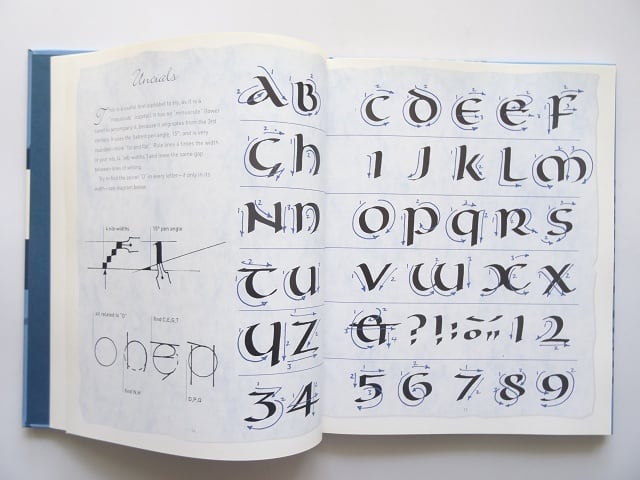 Uncials
This is a useful first alphabet to try, as it is a
"majuscule" (capital). It has no "minuscule" (lower
case) to accompany it, because it originates from the 3rd
century. It uses the flattest pen angle, 15°, and is very
rounded—think "fat and flat". Rule lines 4 times the width
of your nib, (4 nib widths) and leave the same gap
between lines of writing.
Try to find the round "O" in every letter—if only in its
width—see diagram below.
4 nib-widths 15° pen angle
all related to "O" find C,E,G,T
o n e p
find N,H
D,P,Q
A B C D E E F
G h I J k L M
N n O p q R S
T U V W X X
Y Z & ? ! : 1 2
3 4 5 6 7 8 9